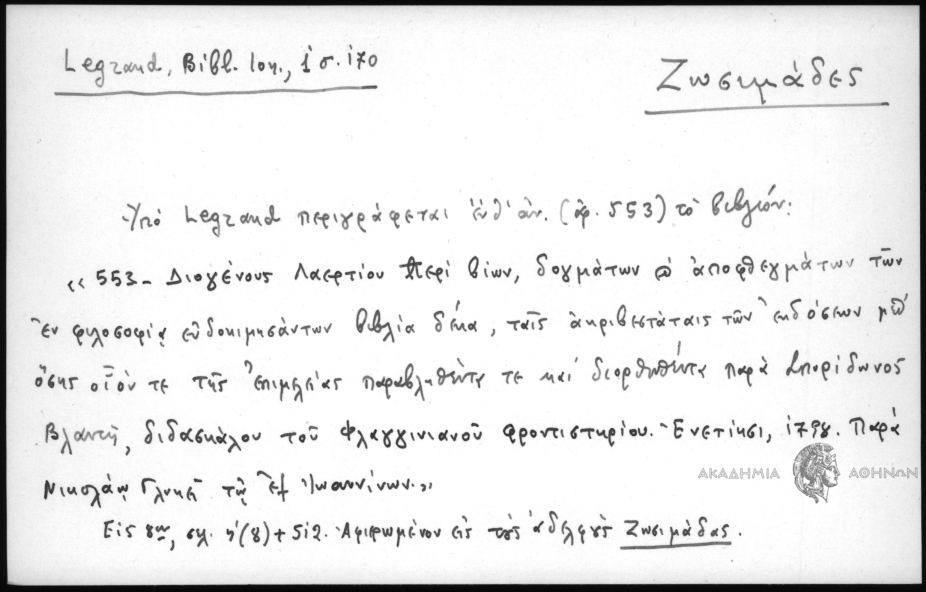 Legrand, Βιβλ. Ιon., 1 σ. 170
Ζωσιμάδες
Ὑπό Legrand περιγράφεται ἐνθ' ἀν. (ἀρ. 553) τό βιβλίον:
«553 - Διογένους Λαερτίου περί βίων, δογμάτων ἀποφθεγμάτων τῶν
ἐν φιλοσοφίᾳ εὐδοκιμησάντων βιβλία δέκα, ταῖς ἀκριβεστάταις τῶν ἐκδόσεων μεθ'
ὅσης οἷόν τε τῆς ἐπιμελείας παραβληθέντα τε καί διορθωθέντα παρά Σπυρίδωνος
Βλαντῆ, διδασκάλου τοῦ Φλαγγινιανοῦ φροντιστηρίου. - Ενετίησι, 1798. Παρά
Νικολάῳ Γλυκεῖ τῷ ἐξ Ἰωαννίνων.»
Εἰς 8ον, σελ. η'(8) + 512. Ἀφιερωμένον εἰς τούς ἀδελφούς Ζωσιμάδας.
ΑΚΑΔΗΜΙΑ ΑΘΗΝΩΝ